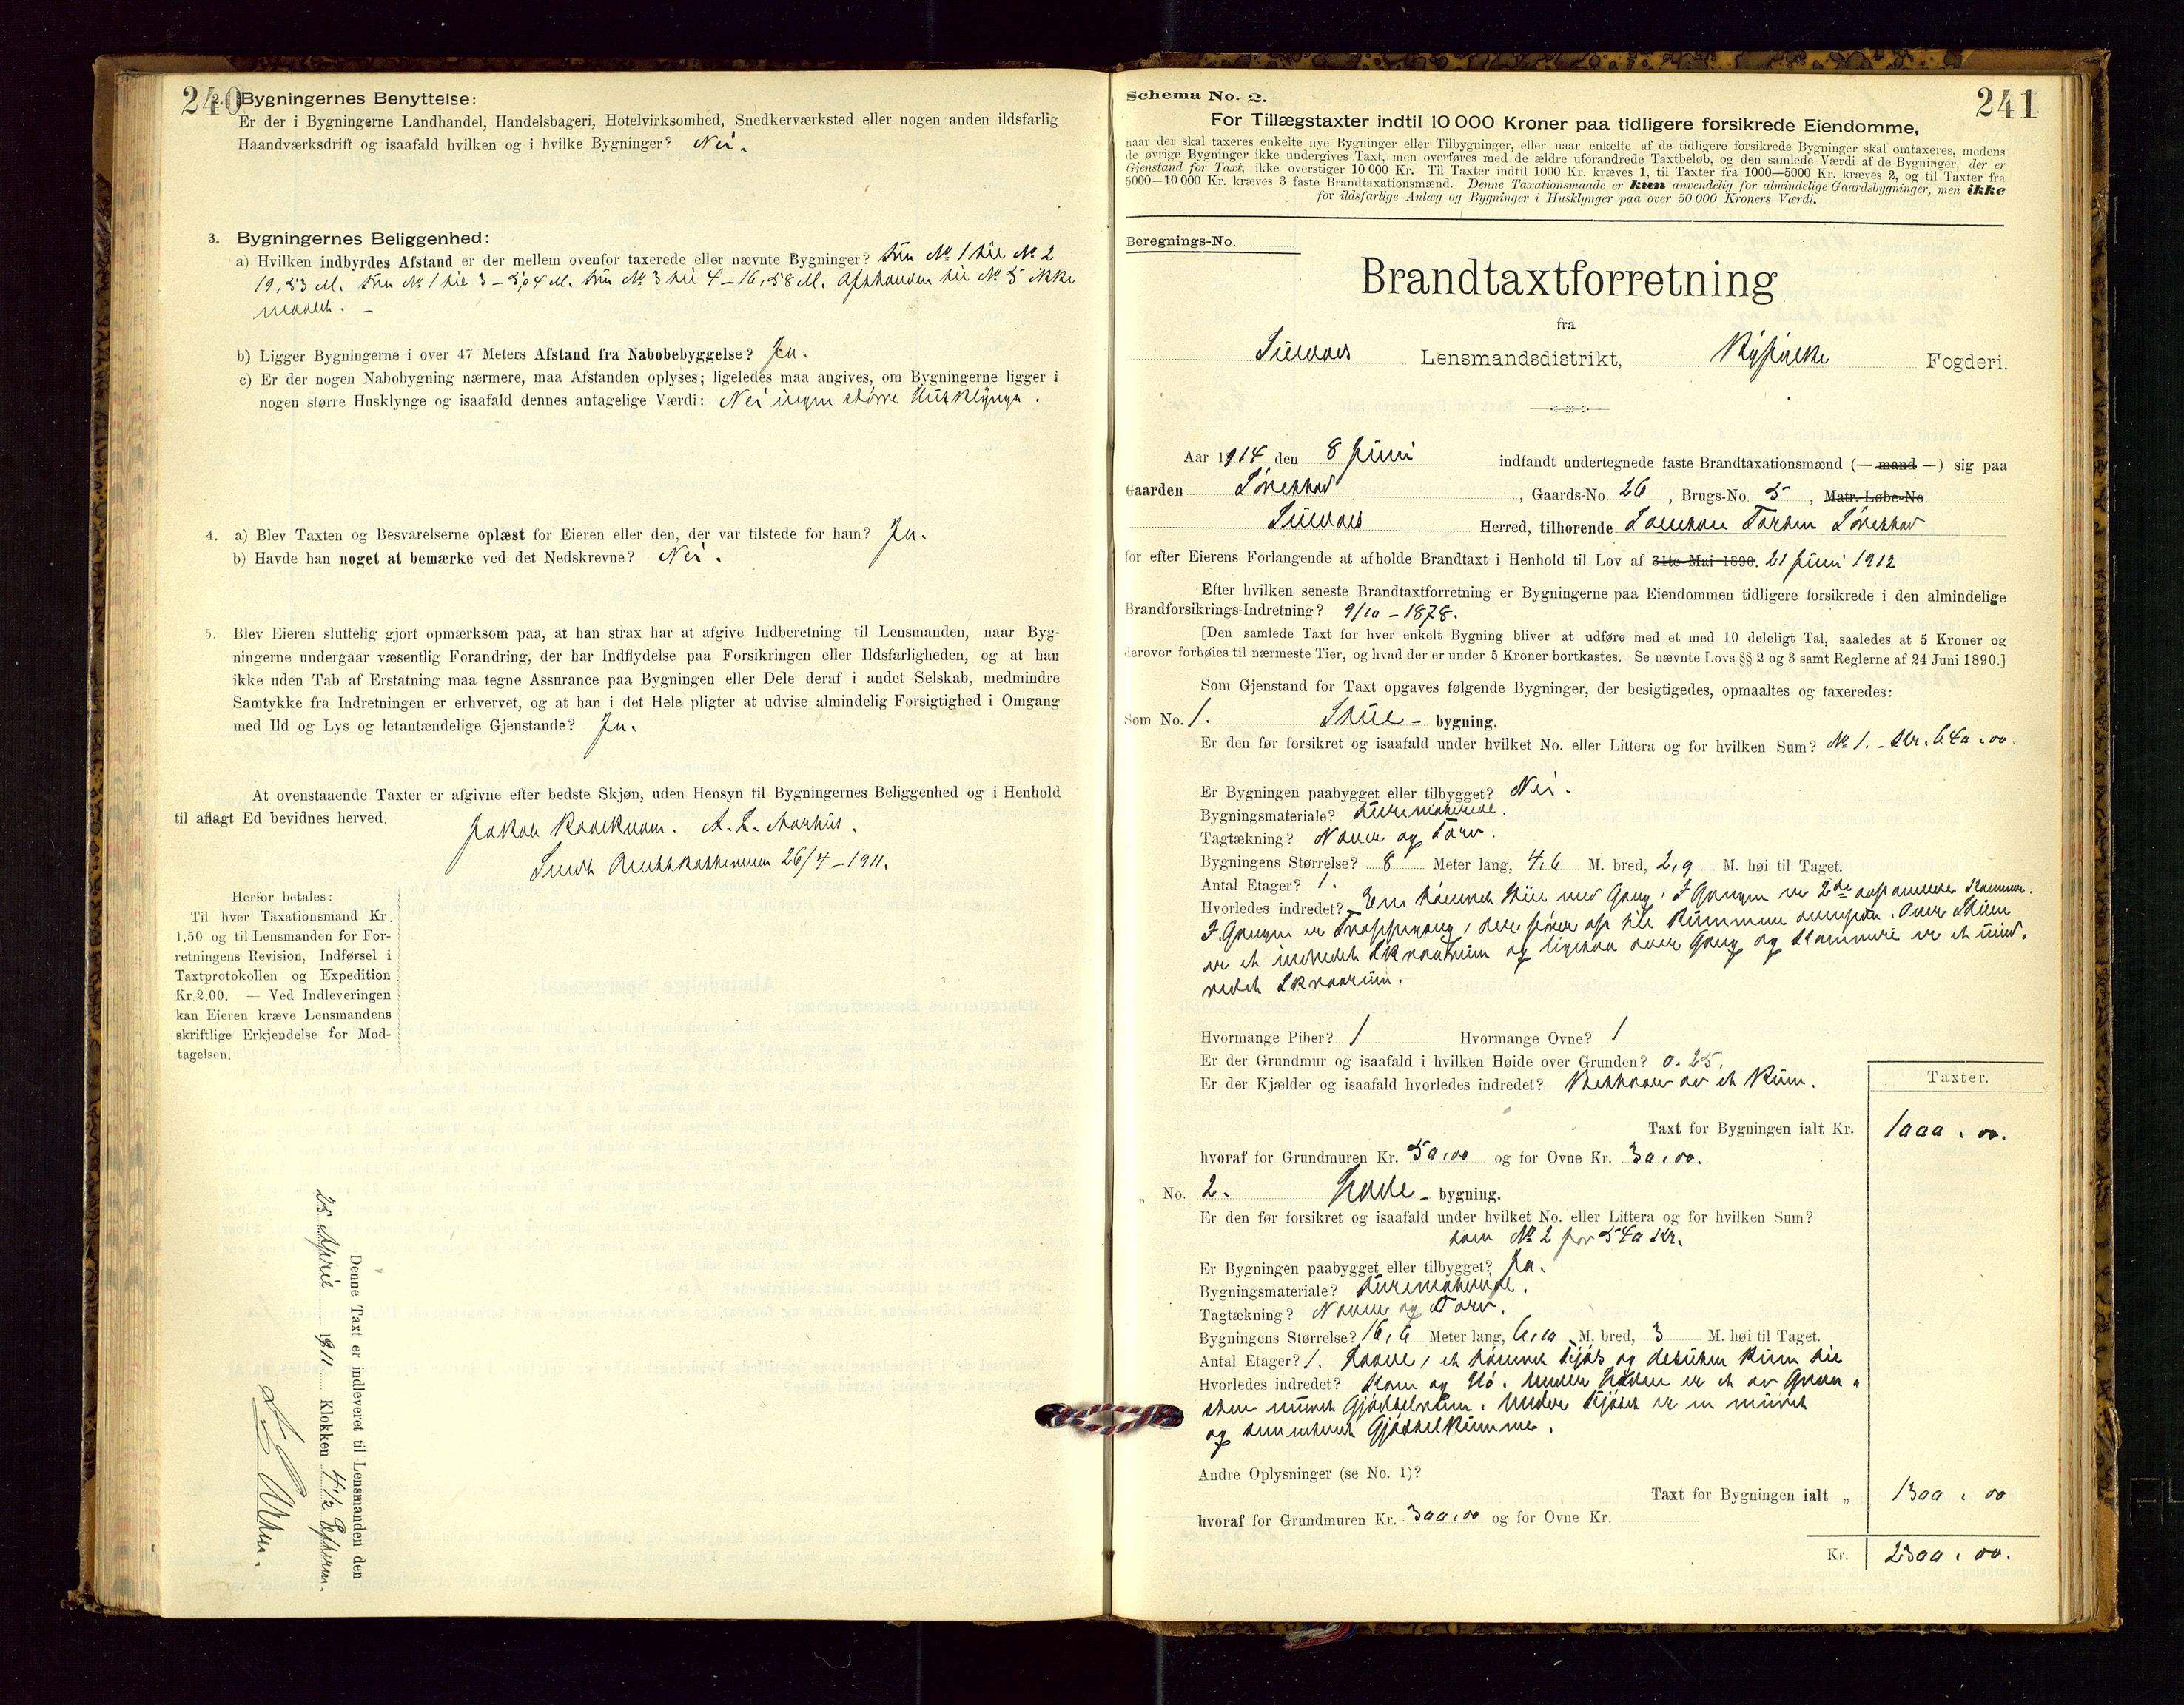 240
2. Bygningernes Benyttelse:
Er der i Bygningerne Landhandel, Handelsbageri, Hotelvirksomhed, Snedkerværksted eller nogen anden ildsfarlig
Haandværksdrift og isaafald hvilken og i hvilke Bygninger? Nei.
3. Bygningernes Beliggenhed:
a) Hvilken indbyrdes Afstand er der mellem ovenfor taxerede eller nævnte Bygninger? Fra No 1 til No 2
19,53 M. Fra No 1 til 3 – 5,04 M. Fra No 3 til 4 – 16,58 M. Afstanden til No 5 ikke
maalt. –
b) Ligger Bygningerne i over 47 Meters Afstand fra Nabobebyggelse? Ja.
c) Er der nogen Nabobygning nærmere, maa Afstanden oplyses; ligeledes maa angives, om Bygningerne ligger i
nogen større Husklynge og isaafald dennes antagelige Værdi: Nei ingen større Husklynge.
4. a) Blev Taxten og Besvarelserne oplæst for Eieren eller den, der var tilstede for ham? Ja.
b) Havde han noget at bemærke ved det Nedskrevne? Nei.
5. Blev Eieren sluttelig gjort opmærksom paa, at han strax har at afgive Indberetning til Lensmanden, naar Byg-
ningerne undergaar væsentlig Forandring, der har Indflydelse paa Forsikringen eller Ildsfarligheden, og at han
ikke uden Tab af Erstatning maa tegne Assurance paa Bygningen eller Dele deraf i andet Selskab, medmindre
Samtykke fra Indretningen er erhvervet, og at han i det Hele pligter at udvise almindelig Forsigtighed i Omgang
med Ild og Lys og letantændelige Gjenstande? Ja.
At ovenstaaende Taxter er afgivne efter bedste Skjøn, uden Hensyn til Bygningernes Beliggenhed og i Henhold
til aflagt Ed bevidnes herved.
Jakob A. L. Aarhus.
26/4 – 1911.
Herfor betales:
Til hver Taxationsmand Kr.
1.50 og til Lensmanden for For-
retningens Revision, Indførsel i
Taxtprotokollen og Expedition
Kr. 2.00. — Ved Indleveringen
kan Eieren kræve Lensmandens
skriftlige Erkjendelse for Mod-
tagelsen.
Denne Taxt er indleveret til Lensmanden den
25 April 1911 Klokken 4 1/2 Efterm.
241
Schema No. 2.
For Tillægstaxter indtil 10 000 Kroner paa tidligere forsikrede Eiendomme,
naar der skal taxeres enkelte nye Bygninger eller Tilbygninger, eller naar enkelte af de tidligere forsikrede Bygninger skal omtaxeres, medens
de øvrige Bygninger ikke undergives Taxt, men overføres med de ældre uforandrede Taxtbeløb, og den samlede Værdi af de Bygninger, der er
Gjenstand for Taxt, ikke overstiger 10 000 Kr. Til Taxter indtil 1000 Kr. kræves 1, til Taxter fra 1000—5000 Kr. kræves 2, og til Taxter fra
5000—10 000 Kr. kræves 3 faste Brandtaxationsmænd. Denne Taxationsmaade er kun anvendelig for almindelige Gaardsbygninger, men ikke
for ildsfarlige Anlæg og Bygninger i Husklynger paa over 50 000 Kroners Værdi.
Beregnings-No.
Brandtaxtforretning
fra
Suldals Lensmandsdistrikt, Ryfylke Fogderi.
Aar 1914 den 8 Juni indfandt undertegnede faste Brandtaxationsmænd (— mand —) sig paa
Gaarden Sørestad, Gaards-No. 26, Brugs-No 5, Matr. Løbe-No.
Suldals Herred, tilhørende Sørestad
for efter Eierens Forlangende at afholde Brandtaxt i Henhold til Lov af 31te Mai 1890. 21 Juni 1912
Efter hvilken seneste Brandtaxtforretning er Bygningerne paa Eiendommen tidligere forsikrede i den almindelige
Brandforsikrings-Indretning? 9/10 – 1878.
[Den samlede Taxt for hver enkelt Bygning bliver at udføre med et med 10 deleligt Tal, saaledes at 5 Kroner og
derover forhøies til nærmeste Tier, og hvad der er under 5 Kroner bortkastes. Se nævnte Lovs §§ 2 og 3 samt Reglerne af 24 Juni 1890.]
Som Gjenstand for Taxt opgaves følgende Bygninger, der besigtigedes, opmaaltes og taxeredes:
Som No. 1. Stue – bygning.
Er den før forsikret og isaafald under hvilket No. eller Littera og for hvilken Sum? No 1. – Kr. 640.00.
Er Bygningen paabygget eller tilbygget? Nei.
Bygningsmateriale? Furematerial.
Tagtækning? Næver og Torv.
Bygningens Størrelse? 8 Meter lang, 4,6 M. bred, 2,9 M. høi til Taget.
Antal Etager? 1.
Hvorledes indredet? En tømret Stue med Gang. I Gangen er 2de Kammer.
I Gangen er Trappegang, over Stuen
er et indredet Skraarum og ligesaa over Gang og Kammere er et uind.
redet Skraarum.
Hvormange Piber? 1 Hvormange Ovne? 1
Er der Grundmur og isaafald i hvilken Høide over Grunden? 0.25.
Er der Kjælder og isaafald hvorledes indredet? Bestaaer av et Rum.
Taxter.
Taxt for Bygningen ialt Kr. 1000.00.
hvoraf for Grundmuren Kr. 50,00 og for Ovne Kr. 30,00.
„ No. 2. Lade – bygning.
Er den før forsikret og isaafald under hvilket No. eller Littera og for hvilken Sum?
som No 2 for 540 Kr.
Er Bygningen paabygget eller tilbygget? Ja.
Bygningsmateriale? Furematerial.
Tagtækning? Næver og Torv.
Bygningens Størrelse? 16,6 Meter lang, 6,10 M. bred, 3 M. høi til Taget.
Antal Etager? 1. Laave, et tømret Fjøs og desuten Rum til
Hvorledes indredet? Korn og Hø. Under Laden er et av Graa-
sten muret Gjødselrum. Under Fjøset er en muret
og sementeret Gjødselkumme.
Andre Oplysninger (se No. 1)?
Taxt for Bygningen ialt „ 1300.00
hvoraf for Grundmuren Kr. 300,00 og for Ovne Kr.
Kr. 2300.00.